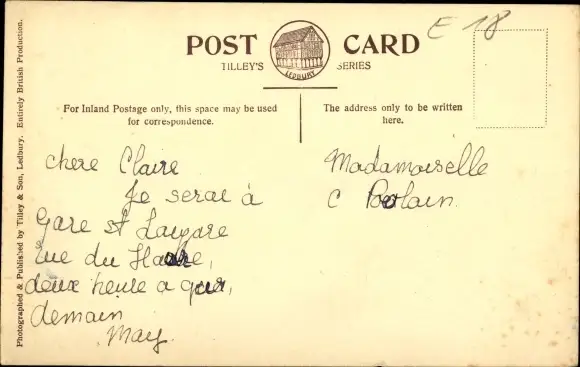 E 18
POST CARD
TILLEY'S SERIES
LEDBURY
For Inland Postage only, this space may be used
for correspondence.
The address only to be written
here.
Photographed & Published by Tilley & Son, Ledbury. Entirely British Production.
chere Claire
Je serai à
Gare st Lazare
rue du Havre,
deux heure a
demain
May.
Madamoiselle
C Polain.